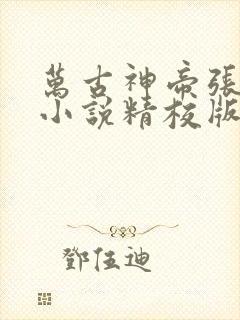 萬古神帝張
小說精校版
鄧伍迪